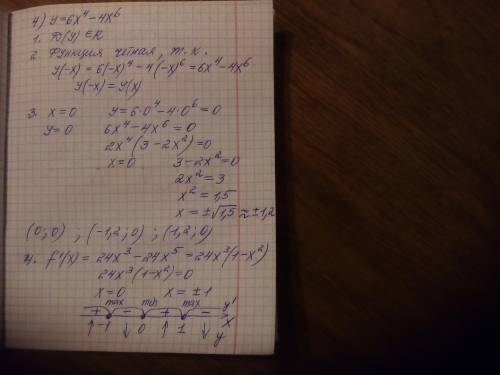 4) y=6x⁴-4x⁶
1. D(y) ∈ R
2. Функция четная, т.к.
y(-x)=6(-x)⁴-4(-x)⁶=6x⁴-4x⁶
y(-x)=y(x)
3. x=0 y=6·0⁴-4·0⁶=0
y=0 6x⁴-4x⁶=0
2x⁴(3-2x²)=0
x=0 3-2x²=0
2x²=3
x²=1,5
x=±√1,5≈±1,2
(0;0) ; (-1,2;0) ; (1,2;0)
4. f'(x)=24x³-24x⁵=24x³(1-x²)
24x³(1-x²)=0
x=0 x=±1
max min max
+ - + - y'
↑ -1 ↓ 0 ↑ 1 ↓ y x